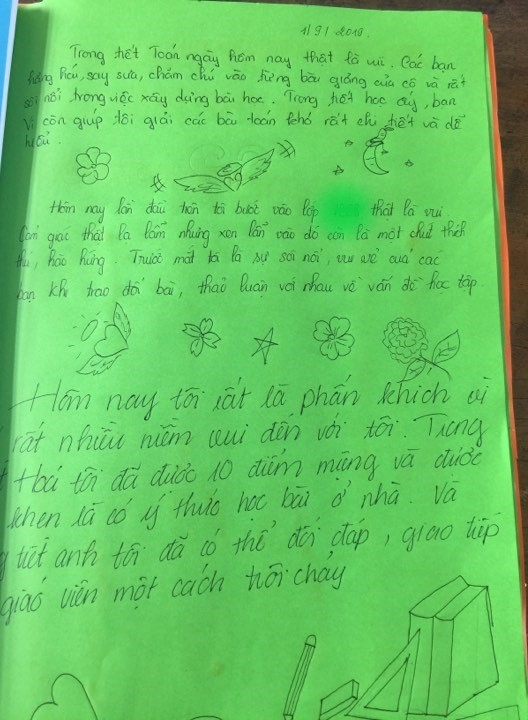 1/9/2019.
Trong tiết Toán ngày hôm nay thật là vui. Các bạn
hứng thú, say sưa, chăm chú vào từng bài giảng của cô và rất
sôi nổi trong việc xây dựng bài học. Trong tiết học ấy, bạn
Vi còn giúp tôi giải các bài toán khó rất chi tiết và dễ
hiểu.
Hôm nay lần đầu tiên tôi bước vào lớp thật là vui
Cảm giác thật lạ lẫm nhưng xen lẫn vào đó còn là một chút thích
thú, hào hứng. Trước mắt tôi là sự sôi nổi, vui vẻ của các
bạn khi trao đổi bài, thảo luận với nhau về vấn đề học tập.
Hôm nay tôi rất là phấn khích vì
rất nhiều niềm vui đến với tôi. Trong
Hoá tôi đã được 10 điểm miệng và được
khen là có ý thức học bài ở nhà. Và
tiết anh tôi đã có thể đối đáp, giao tiếp
giáo viên một cách trôi chảy